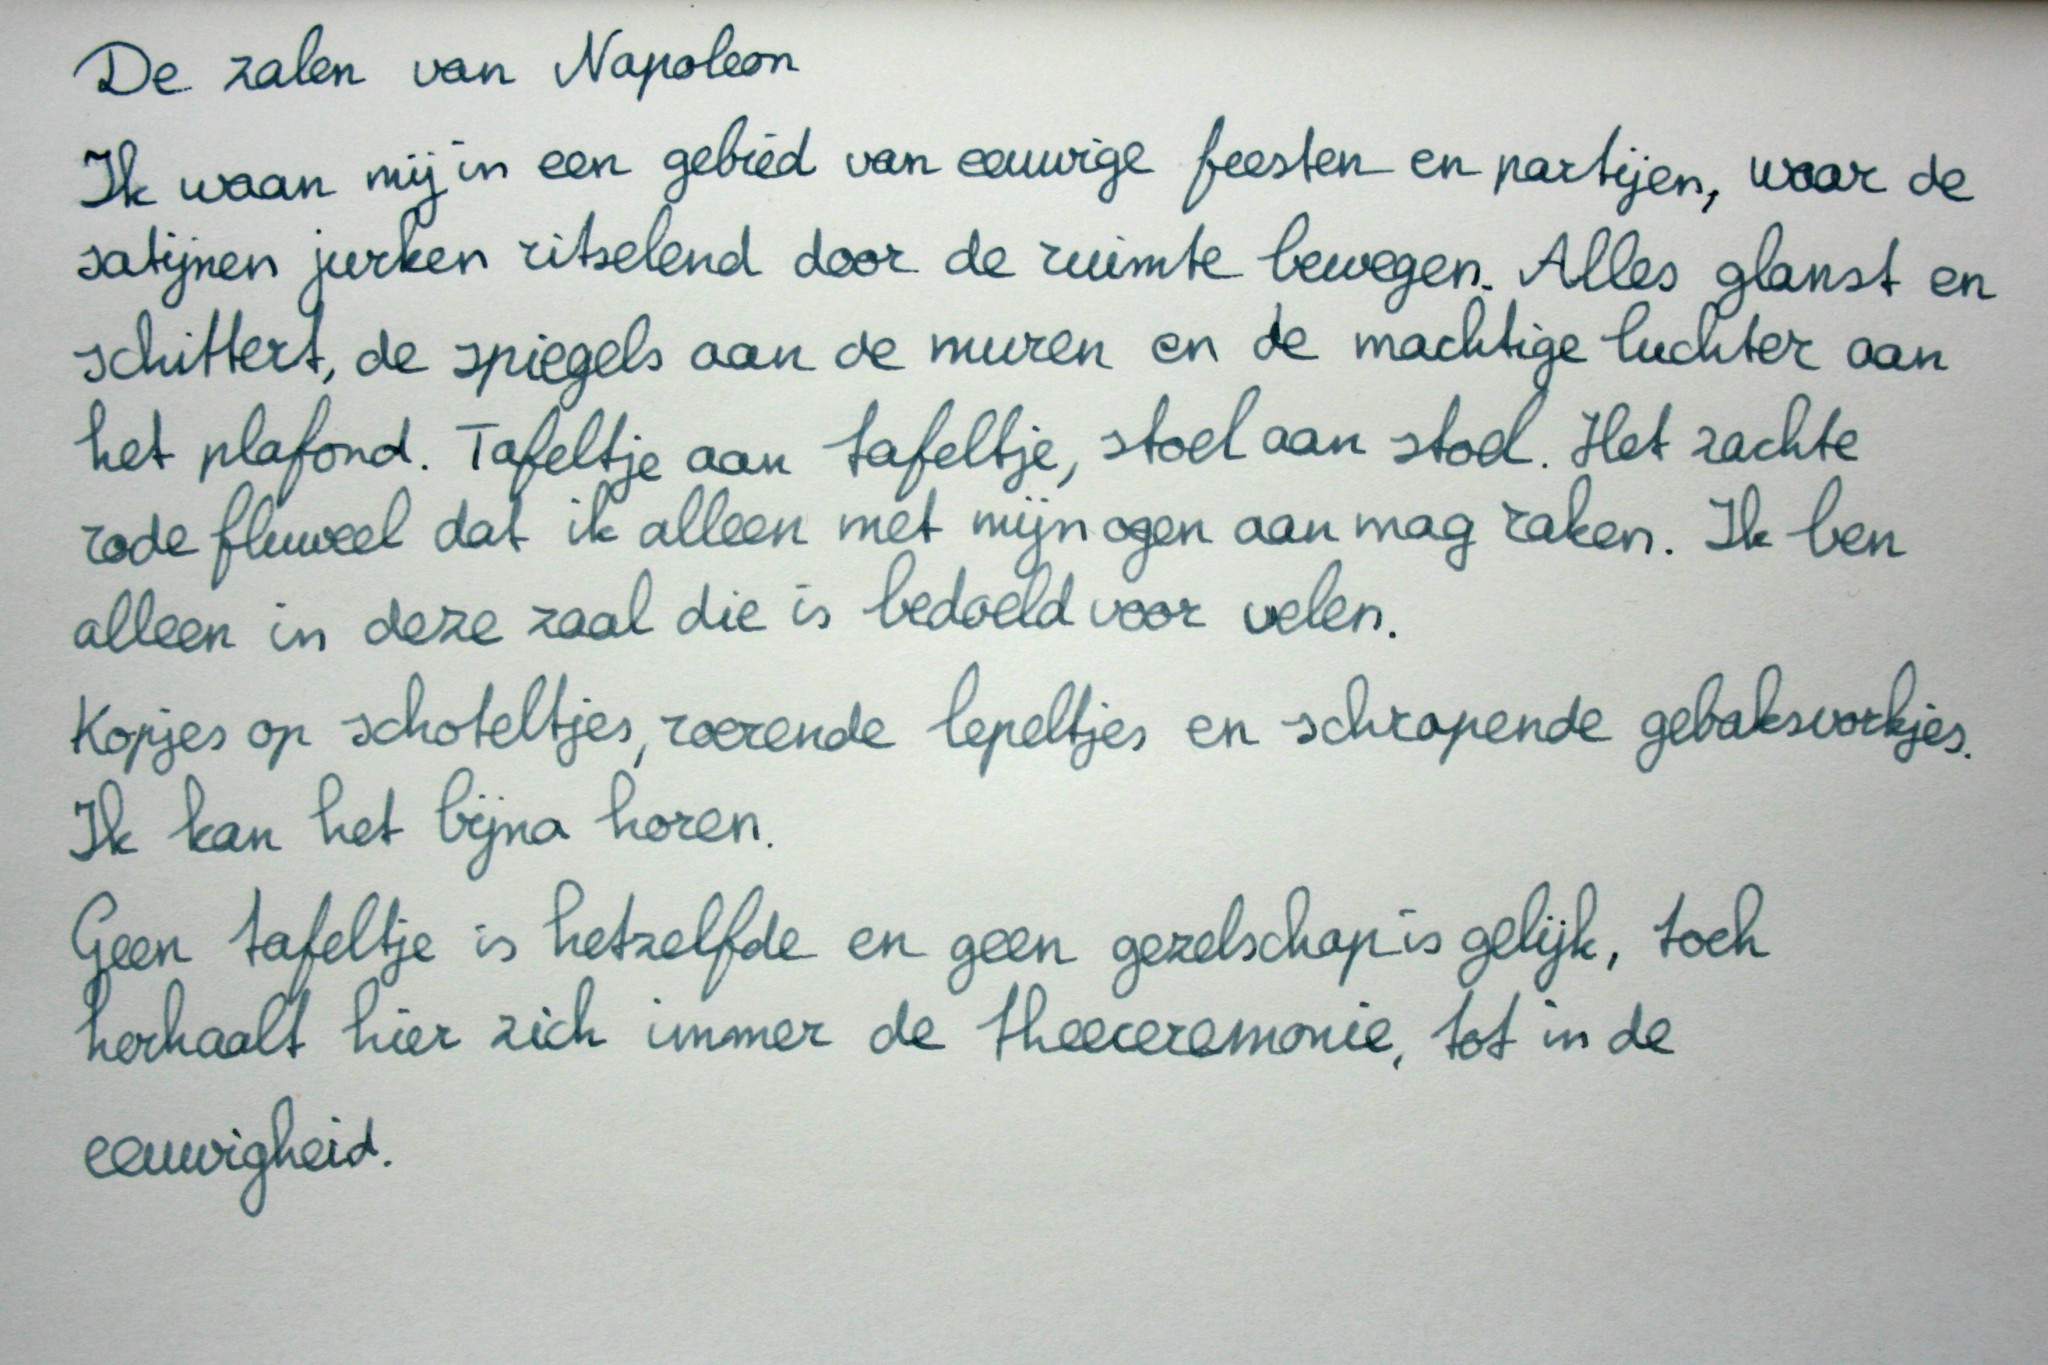 De zalen van Napoleon
Ik waan mij in een gebied van eeuwige feesten en partijen, waar de
satijnen jurken ritselend door de ruimte bewegen. Alles glanst en
schittert, de spiegels aan de muren en de machtige luchter aan
het plafond. Tafeltje aan tafeltje, stoel aan stoel. Het zachte
rode fluweel dat ik alleen met mijn ogen aan mag raken. Ik ben
alleen in deze zaal die is bedoeld voor velen.
Kopjes op schoteltjes, roerende lepeltjes en schrapende gebaksvorkjes.
Ik kan het bijna horen.
Geen tafeltje is hetzelfde en geen gezelschap is gelijk, toch
herhaalt hier zich immer de theeceremonie, tot in de
eeuwigheid.